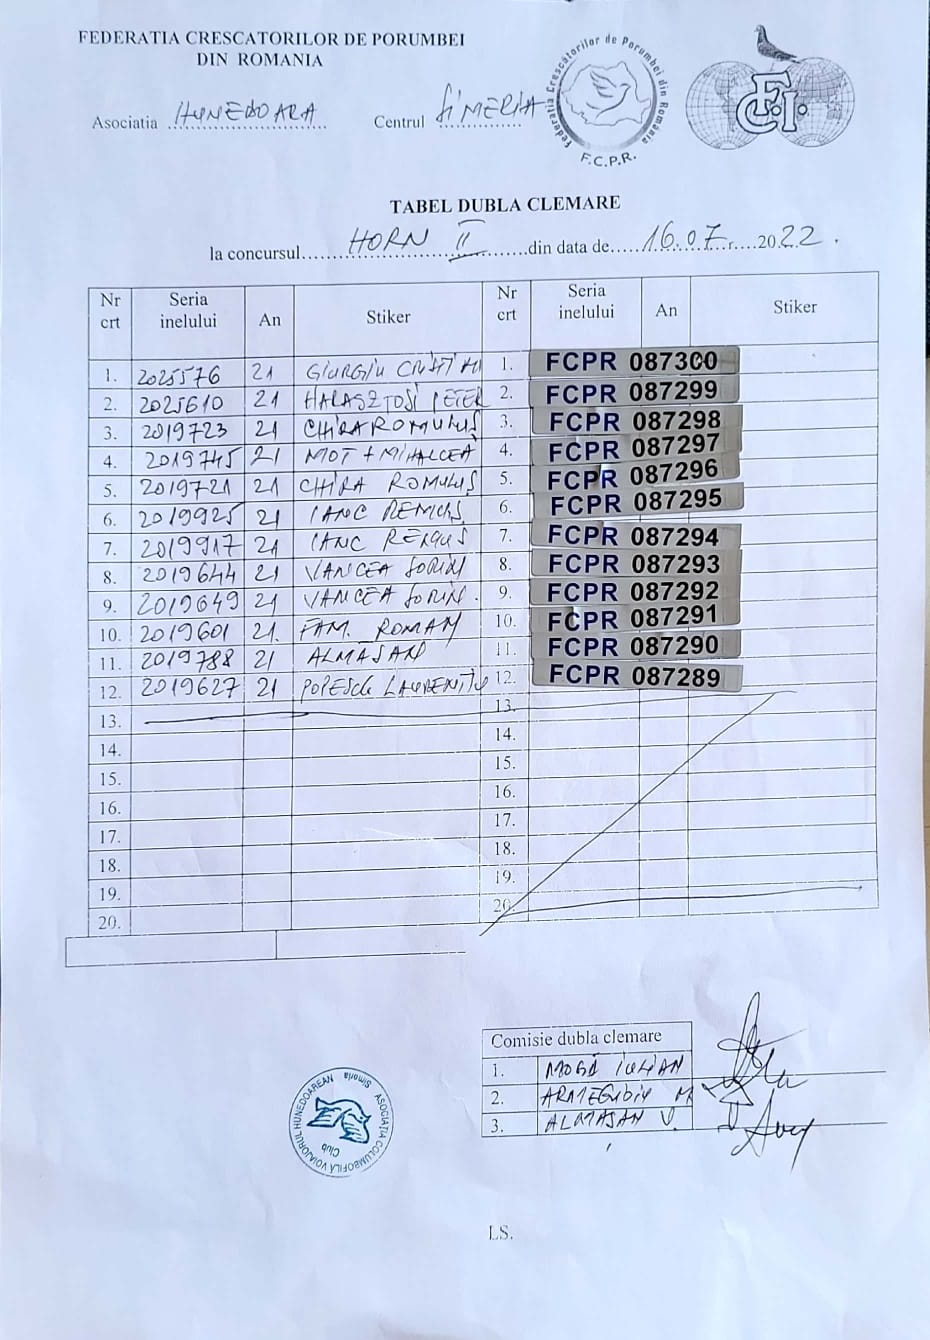 FEDERATIA CRESCATORILOR DE PORUMBEI
DIN ROMANIA
Asociatia HUNEDOARA Centrul SIMERIA
Federatia Crescătorilor de Porumbei din România
F.C.P.R.
F.C.I.
TABEL DUBLA CLEMARE
la concursul HORN II din data de 16.07.2022.
Nr crt Seria inelului An Stiker Nr crt Seria inelului An Stiker
1. 2025576 21 GIURGIU CRISTIAN 1. FCPR 087300
2. 2025610 21 HARASZTOSI PETER 2. FCPR 087299
3. 2019723 21 CHIRA ROMULUS 3. FCPR 087298
4. 2019745 21 MOT + MIHALCEA 4. FCPR 087297
5. 2019721 21 CHIRA ROMULUS 5. FCPR 087296
6. 2019925 21 IANC REMUS 6. FCPR 087295
7. 2019917 21 IANC REMUS 7. FCPR 087294
8. 2019644 21 VANCEA SORIN 8. FCPR 087293
9. 2019649 21 VANCEA SORIN. 9. FCPR 087292
10. 2019601 21. FAM. ROMAN 10. FCPR 087291
11. 2019788 21 ALMASAN 11. FCPR 087290
12. 2019627 21 POPESCU LAURENTIU 12. FCPR 087289
13. 13.
14. 14.
15. 15.
16. 16.
17. 17.
18. 18.
19. 19.
20. 20.
Comisie dubla clemare
1. MOGA IULIAN
2. M
3. ALMASAN V.
ASOCIATIA COLUMBOFILĂ VOIAJORUL HUNEDOAREAN
Club Simeria
LS.